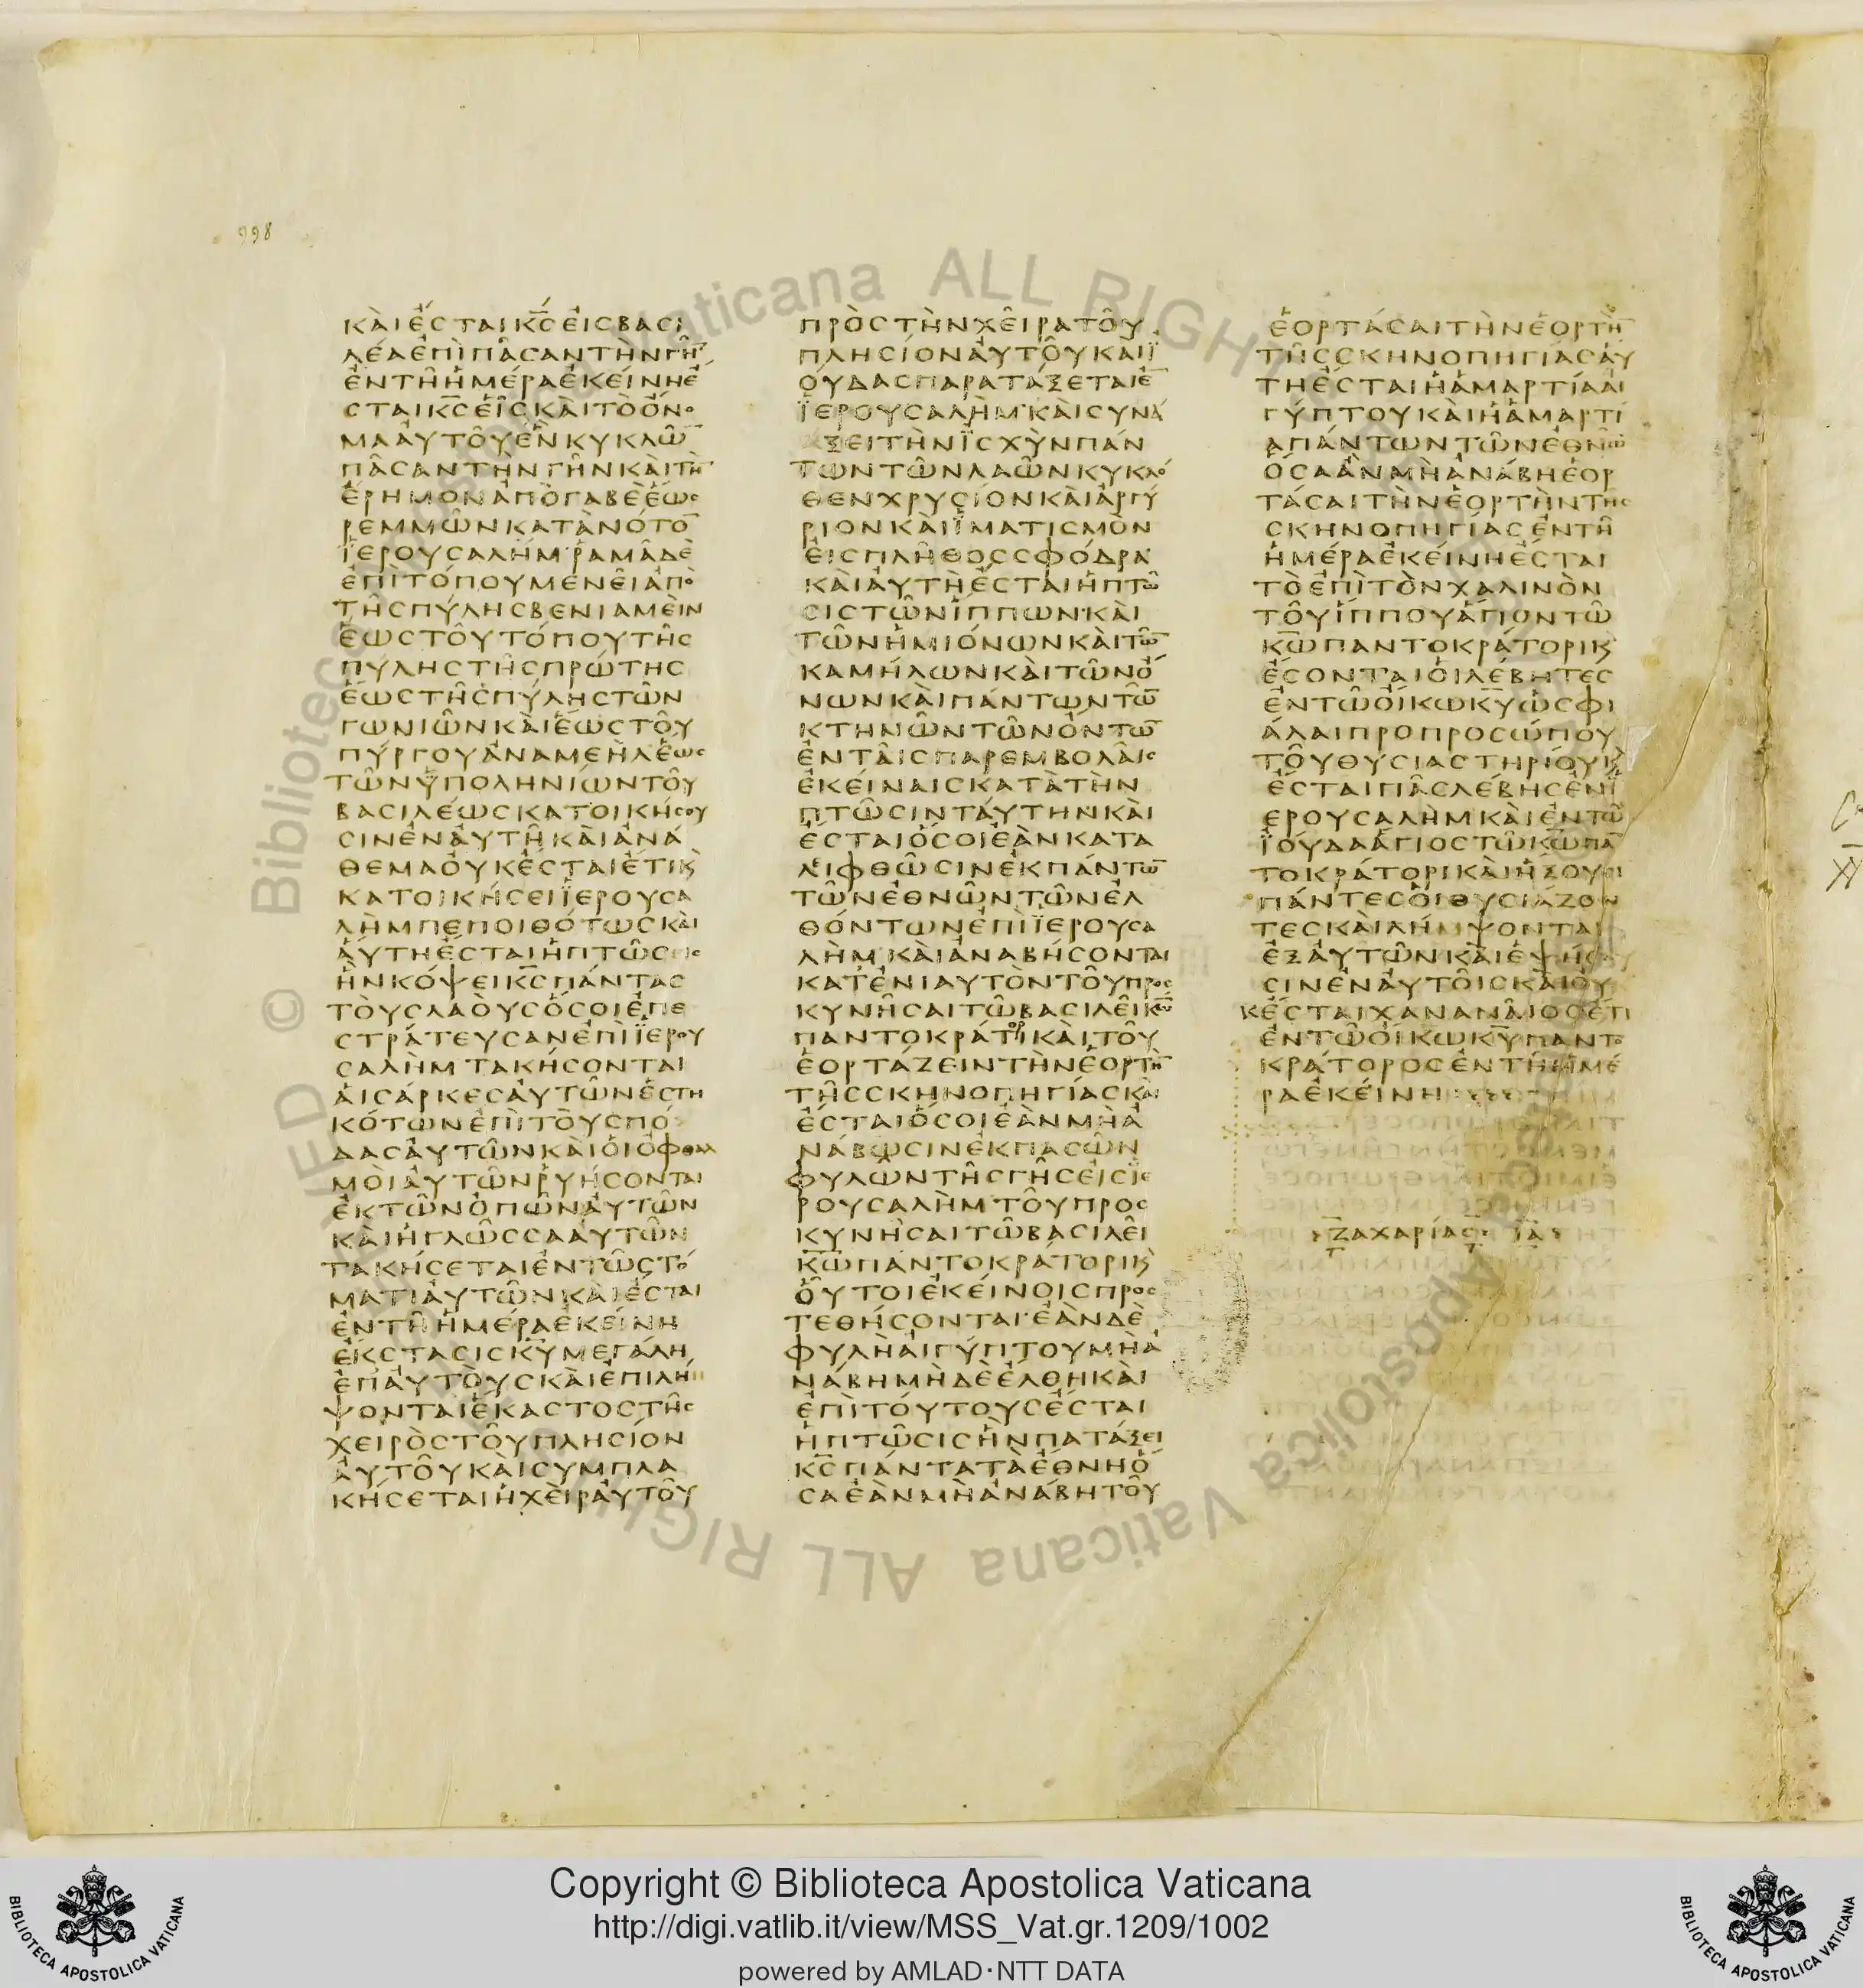 998
ΚΑὶ ἔϹΤΑΙ Κ̅Ϲ̅ ΕἰϹ ΒΑϹΙ
ΛέΑ ἐΠὶ Πᾶ̓ϹΑΝ ΤὴΝ ΓῆΝ
ἐΝ Τῇ ἡΜέΡΑ ἐΚΕίΝΗ ἔ
ϹΤΑΙ Κ̅Ϲ̅ ΕἷϹ ΚΑὶ Τὸ ὄΝο
ΜΑ ΑὐΤΟῦ ἓΝ ΚΥΚΛῶ̅
ΠᾶϹΑΝ ΤὴΝ ΓῆΝ ΚΑὶ Τὴ̅
ἔΡΗΜΟΝ ἀΠὸ ΓΑΒὲ ἕωϲ
ΡΕΜΜῶΝ ΚΑΤὰ ΝόΤΟ̅
ἸΕΡΟΥϹΑΛήΜ· ῬΑΜᾶ Δὲ
ἐΠὶ ΤόΠΟΥ ΜΕΝΕῖ ἀΠὸ
ΤῆϹ ΠύΛΗϹ ΒΕΝΙΑΜΕὶΝ
ἕωϹ ΤΟῦ ΤόΠΟΥ ΤῆϹ
ΠύΛΗϹ ΤῆϹ ΠΡώΤΗϹ
ἕωϹ ΤῆϹ ΠύΛΗϹ ΤῶΝ
ΓωΝΙῶΝ ΚΑὶ ἕωϹ ΤΟῦ
ΠύΡΓΟΥ ἀΝΑΜΕὴΛ ἕωϲ
ΤῶΝ ὑΠΟΛΗΝίωΝ ΤΟῦ
ΒΑϹΙΛέωϹ ΚΑΤΟΙΚήϲου
ϹΙΝ ἐΝ ΑὐΤῇ ΚΑὶ ἀΝά
ΘΕΜΑ ΟὐΚ ἔϹΤΑΙ ἔΤΙ Κὶ
ΚΑΤΟΙΚήϹΕΙ ἸΕΡΟΥϹΑ
ΛὴΜ ΠΕΠΟΙΘόΤωϹ Κὰι
ΑὕΤΗ ἔϹΤΑΙ ἡ ΠΤῶϹιϲ
ἣΝ ΚόΨΕΙ Κ̅Ϲ̅ ΠάΝΤΑϹ
ΤΟὺϹ ΛΑΟὺϹ ὅϹΟΙ ἐΠΕ
ϹΤΡάΤΕΥϹΑΝ ἐΠὶ ἸΕΡΟΥ
ϹΑΛὴΜ ΤΑΚήϹΟΝΤΑΙ
Αἱ ϹάΡΚΕϹ ΑὐΤῶΝ ἑϹΤΗ
ΚόΤωΝ ἐΠὶ ΤΟὺϹ Πό
ΔΑϹ ΑὐΤῶΝ ΚΑὶ Οἱ Ὀφθαλ
ΜΟὶ ΑὐΤῶΝ ῥΥήϹΟΝΤΑΙ
ἐΚ ΤῶΝ ὀΠῶΝ ΑὐΤῶΝ
ΚΑὶ ἡ ΓΛῶϹϹΑ ΑὐΤῶΝ
ΤΑΚήϹΕΤΑΙ ἐΝ Τῷ ϹΤό
ΜΑΤΙ ΑὐΤῶΝ ΚΑὶ ἔϹΤΑΙ
ἐΝ Τῇ ἡΜέΡΑ ἐΚΕίΝΗ
ἔΚϹΤΑϹΙϹ Κ̅Υ̅ ΜΕΓάΛΗ
ἐΠ ΑὐΤΟὺϹ ΚΑὶ ἐΠΙΛή
ΨΟΝΤΑΙ ἕΚΑϹΤΟϹ Τῆϲ
ΧΕΙΡὸϹ ΤΟῦ ΠΛΗϹίΟΝ
ΑὐΤΟῦ ΚΑὶ ϹΥΜΠΛΑ
ΚήϹΕΤΑΙ ἡ ΧΕὶΡ ΑὐΤΟῦ
ΠΡὸϹ ΤὴΝ ΧΕῖΡΑ ΤΟῦ
ΠΛΗϹίΟΝ ΑὐΤΟῦ ΚΑὶ Ἰ
ΟύΔΑϹ ΠΑΡΑΤάΞΕΤΑΙ ἐ̅
ἸΕΡΟΥϹΑΛὴΜ· ΚΑὶ ϹΥΝά
ΞΕΙ ΤὴΝ ἸϹΧὺΝ ΠάΝ
ΤωΝ ΤῶΝ ΛΑῶΝ ΚΥΚΛό
ΘΕΝ ΧΡΥϹίΟΝ ΚΑὶ ἀΡΓύ
ΡΙΟΝ ΚΑὶ ἹΜΑΤΙϹΜὸΝ
ΕἰϹ ΠΛῆΘΟϹ ϹΦόΔΡΑ
ΚΑὶ ΑὕΤΗ ἔϹΤΑΙ ἡ ΠΤῶ
ϹΙϹ ΤῶΝ ἵΠΠωΝ· ΚΑὶ
ΤῶΝ ἡΜΙόΝωΝ ΚΑὶ Τῶ̅
ΚΑΜήΛωΝ ΚΑὶ ΤῶΝ ὄ
ΝωΝ ΚΑὶ ΠάΝΤωΝ Τῶ̅
ΚΤΗΝῶΝ ΤῶΝ ὄΝΤω̅
ἐΝ ΤΑῖϹ ΠΑΡΕΜΒΟΛΑῖϲ
ἐΚΕίΝΑΙϹ ΚΑΤὰ ΤὴΝ
ΠΤῶϹΙΝ ΤΑύΤΗΝ· ΚΑὶ
ἔϹΤΑΙ ὅϹΟΙ ἐὰΝ ΚΑΤΑ
ΛΙΦΘῶϹΙΝ ἐΚ ΠάΝΤω̅
ΤῶΝ ἐΘΝῶΝ ΤῶΝ ἐΛ
ΘόΝΤωΝ ἐΠὶ ἸΕΡΟΥϹΑ
ΛὴΜ· ΚΑὶ ἀΝΑΒήϹΟΝΤΑΙ
ΚΑΤ ἐΝΙΑΥΤὸΝ ΤΟῦ Προϲ
ΚΥΝῆϹΑΙ Τῷ ΒΑϹΙΛΕῖ Κ̅ω̅
ΠΑΝΤΟΚΡάΤορΙ ΚΑὶ ΤΟῦ
ἑΟΡΤάΖΕΙΝ ΤὴΝ ἑΟΡΤὴ̅
ΤῆϹ ϹΚΗΝΟΠΗΓίΑϹ Κὰι
ἔϹΤΑΙ ὅϹΟΙ ἐὰΝ Μὴ ἀ
ΝΑΒῶϹΙΝ ἐΚ ΠΑϹῶΝ
ΦΥΛῶΝ ΤῆϹ ΓῆϹ ΕἰϹ Ἰε
ΡΟΥϹΑΛὴΜ ΤΟῦ ΠΡΟϹ
ΚΥΝῆϹΑΙ Τῷ ΒΑϹΙΛΕῖ
Κ̅ω̅ ΠΑΝΤΟΚΡάΤΟΡΙ Κὶ
ΟὗΤΟΙ ἐΚΕίΝΟΙϹ Προϲ
ΤΕΘήϹΟΝΤΑΙ· ἐὰΝ Δὲ
ΦΥΛὴ ΑἰΓύΠΤΟΥ Μὴ ἀ
ΝΑΒῇ ΜὴΔΕ ἔΛΘΗ ΚΑὶ
ἐΠὶ ΤΟύΤΟΥϹ ἔϹΤΑΙ
ἡ ΠΤῶϹΙϹ ἣΝ ΠΑΤάΞΕΙ
Κ̅Ϲ̅ ΠάΝΤΑ Τὰ ἔΘΝΗ ὅ
ϹΑ ἐὰΝ Μὴ ἀΝΑΒῇ ΤΟῦ
ἑΟΡΤάϹΑΙ ΤὴΝ ἑΟΡΤὴ̅
ΤῆϹ ϹΚΗΝΟΠΗΓίΑϹ Αὕ
ΤΗ ἔϹΤΑΙ ἡ ἁΜΑΡΤίΑ Αἰ
ΓύΠΤΟΥ ΚΑὶ ἡ ἁΜΑΡΤί
Α ΠάΝΤωΝ ΤῶΝ ἐΘΝῶ̅
ὅϹΑ ἂΝ Μὴ ἀΝΑΒῇ ἑΟΡ
ΤάϹΑΙ ΤὴΝ ἑΟΡΤὴΝ Τηϲ
ϹΚΗΝΟΠΗΓίΑϹ ἐΝ Τῇ
ἡΜέΡΑ ἐΚΕίΝΗ ἔϹΤΑΙ
Τὸ ἐΠὶ ΤὸΝ ΧΑΛΙΝὸΝ
ΤΟῦ ἵΠΠΟΥ ἅΓΙΟΝ Τῷ
Κ̅ω̅ ΠΑΝΤΟΚΡάΤΟΡΙ Κὶ
ἔϹΟΝΤΑΙ Οἱ ΛέΒΗΤΕϹ
ἐΝ Τῷ ΟἴΚω Κ̅Υ̅ ὡϹ ΦΙ
άΛΑΙ ΠΡΟ ΠΡΟϹώΠΟΥ
ΤΟῦ ΘΥϹΙΑϹΤΗΡίΟΥ Κὶ
ἔϹΤΑΙ ΠᾶϹ ΛέΒΗϹ ἐΝ Ἰ
ΕΡΟΥϹΑΛὴΜ ΚΑὶ ἐΝ Τῷ
ἸΟύΔΑ ἅΓΙΟϹ Τῷ Κ̅ω̅ ΠΑ̅
ΤΟΚΡάΤΟΡΙ ΚΑὶ ἥΞΟΥϲι
ΠάΝΤΕϹ Οἱ ΘΥϹΙάΖΟΝ
ΤΕϹ ΚΑὶ ΛήΜΨΟΝΤΑΙ
ἐΞ ΑὐΤῶΝ ΚΑὶ ἑΨήϹΟΥ
ϹΙΝ ἐΝ ΑὐΤΟῖϹ ΚΑὶ ΟὐΥ
ΚέϹΤΑΙ ΧΑΝΑΝΑῖΟϹ ἔΤΙ
ἐΝ Τῷ ΟἴΚω Κ̅Υ̅ ΠΑΝΤο
ΚΡάΤΟΡΟϹ ἐΝ Τῇ ἡΜέ
ΡΑ ἐΚΕίΝΗ
ΖΑΧΑΡίΑϹ ΙΑ
Copyright © Biblioteca Apostolica Vaticana
http://digi.vatlib.it/view/MSS_Vat.gr.1209/1002
powered by AMLAD·NTT DATA
BIBLIOTECA APOSTOLICA VATICANA
BIBLIOTECA APOSTOLICA VATICANA